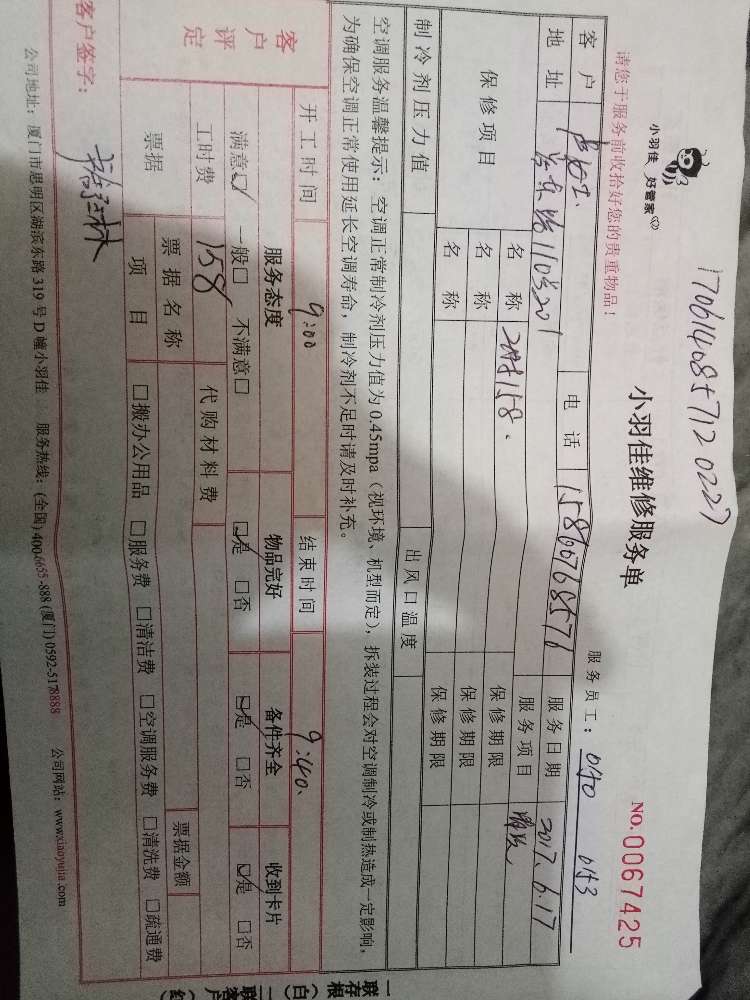 170614085712 0227
小羽佳 好管家
小羽佳维修服务单
NO.0067425
请您于服务前收拾好您的贵重物品！
服务员工：0140 0143
客户 电话 15860768576 服务日期 2017.6.17
地址 110号201 服务项目
保修项目 名称 保修期限
名称 保修期限
名称 保修期限
制冷剂压力值 出风口温度
空调服务温馨提示：空调正常制冷剂压力值为0.45mpa（视环境、机型而定），拆装过程会对空调制冷或制热造成一定影响，
为确保空调正常使用延长空调寿命，制冷剂不足时请及时补充。
开工时间 9:00 结束时间 9:40.
客户评定 服务态度 物品完好 备件齐全 收到卡片
满意☑ 一般□ 不满意□ ☑是 □否 ☑是 □否 ☑是 □否
工时费 158 代购材料费
票据 票据名称 票据金额
项目 □搬办公用品 □服务费 □清洁费 □空调服务费 □清洗费 □疏通费
客户签字：
公司地址：厦门市思明区湖滨东路319号D幢小羽佳 服务热线：(全国)400-6655-888 (厦门)0592-5178888 公司网站：www.xiaoyujia.com